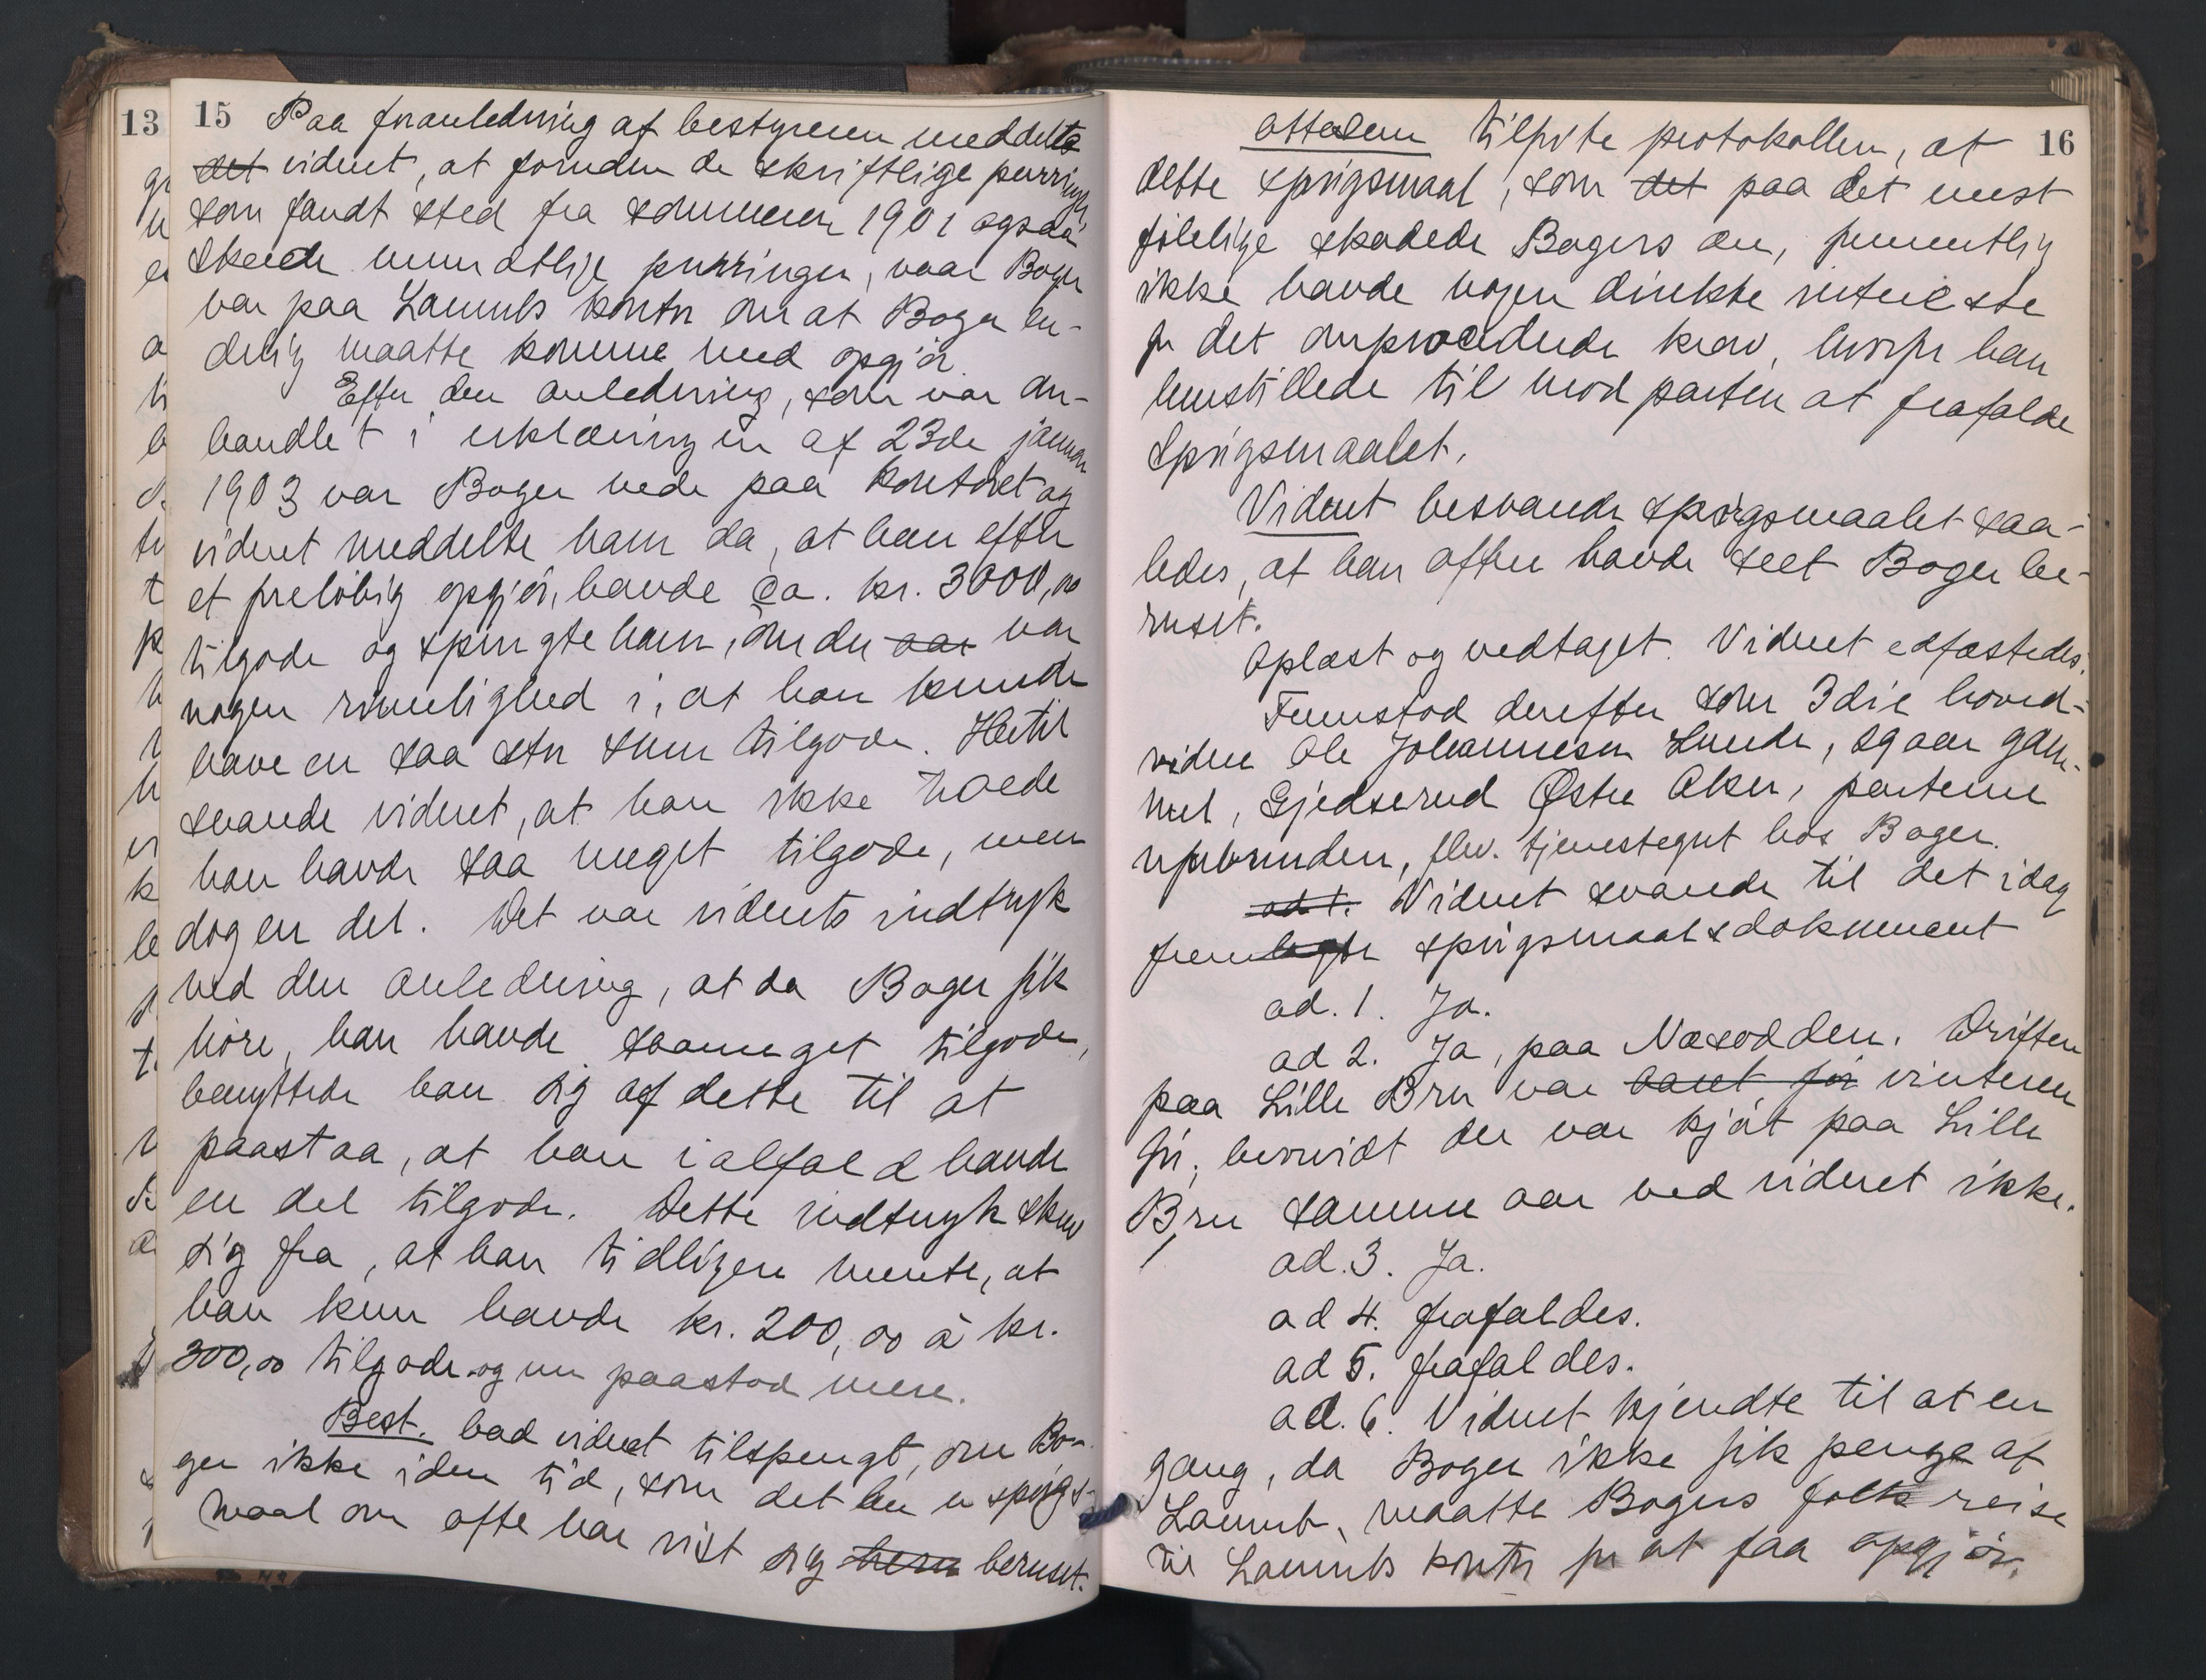 13
15 Paa foranledning af bestyreren meddelte
det vidnet, at foruden de skriftlige purringer,
som fandt sted fra sommeren 1901 ogsaa
skeede mundtlige purringer, naar Boger
var paa Lamnts kontor om at Boger en-
delig maatte komme med opgjør.
Efter den anledning, som var om-
handlet i erklæringen af 23de januar
1903 var Boger nede paa kontoret og
vidnet meddelte ham da, at han efter
et foreløbig opgjør, havde ca. kr. 3000,00
tilgode og spurgte ham, om der aar var
nogen rimelighed i, at han kunde
have en saa stor sum tilgode. Hertil
svarede vidnet, at han ikke troede
han havde saa meget tilgode, men
dog en del. Det var vidnets indtryk
ved den anledning, at da Boger fik
høre, han havde saameget tilgode,
benyttede han sig af dette til at
paastaa, at han ialfald havde
en del tilgode. Dette indtryk skrev
sig fra, at han tidligere mente, at
han kun havde kr. 200,00 à kr.
300,00 tilgode og nu paastod mere.
Best. bad vidnet tilspurgt, om Bo-
ger ikke i den tid, som det her er spørgs-
maal om ofte har vist sig beruset.
16
attesterer tilførte protokollen, at
dette spørgsmaal, som det paa det mest
følelige skadede Bogers ære, formentlig
ikke havde nogen direkte interesse
for det omprocederede krav, hvorfor han
henstillede til modparten at frafalde
spørgsmaalet.
Vidnet besvarede spørgsmaalet saa-
ledes, at han aften havde seet Boger be-
ruset.
Oplæst og vedtaget. Vidnet edfæstedes.
Fremstod derefter som 3die hoved-
vidne Ole Johannesen Lunde, 29 aar gam-
mel, Gjedserud Østre Aker, parterne
uforbunden, flv. tjenestegut hos Boger.
ad 1. Vidnet svarede til det idag
fremlagte spørgsmaalsdokument
ad. 1. Ja.
ad 2. Ja, paa Næsodden. Driften
paa Lille Bru var været før vinteren
før, hvorvidt der var kjørt paa Lille
Bru samme aar ved vidnet ikke.
ad. 3. Ja.
ad 4. frafaldes.
ad 5. frafaldes.
ad. 6. Vidnet kjendte til at en
gang, da Boger ikke fik penge af
Lamnt, maatte Bogers folk reise
til Lamnts kontor for at faa opgjør.